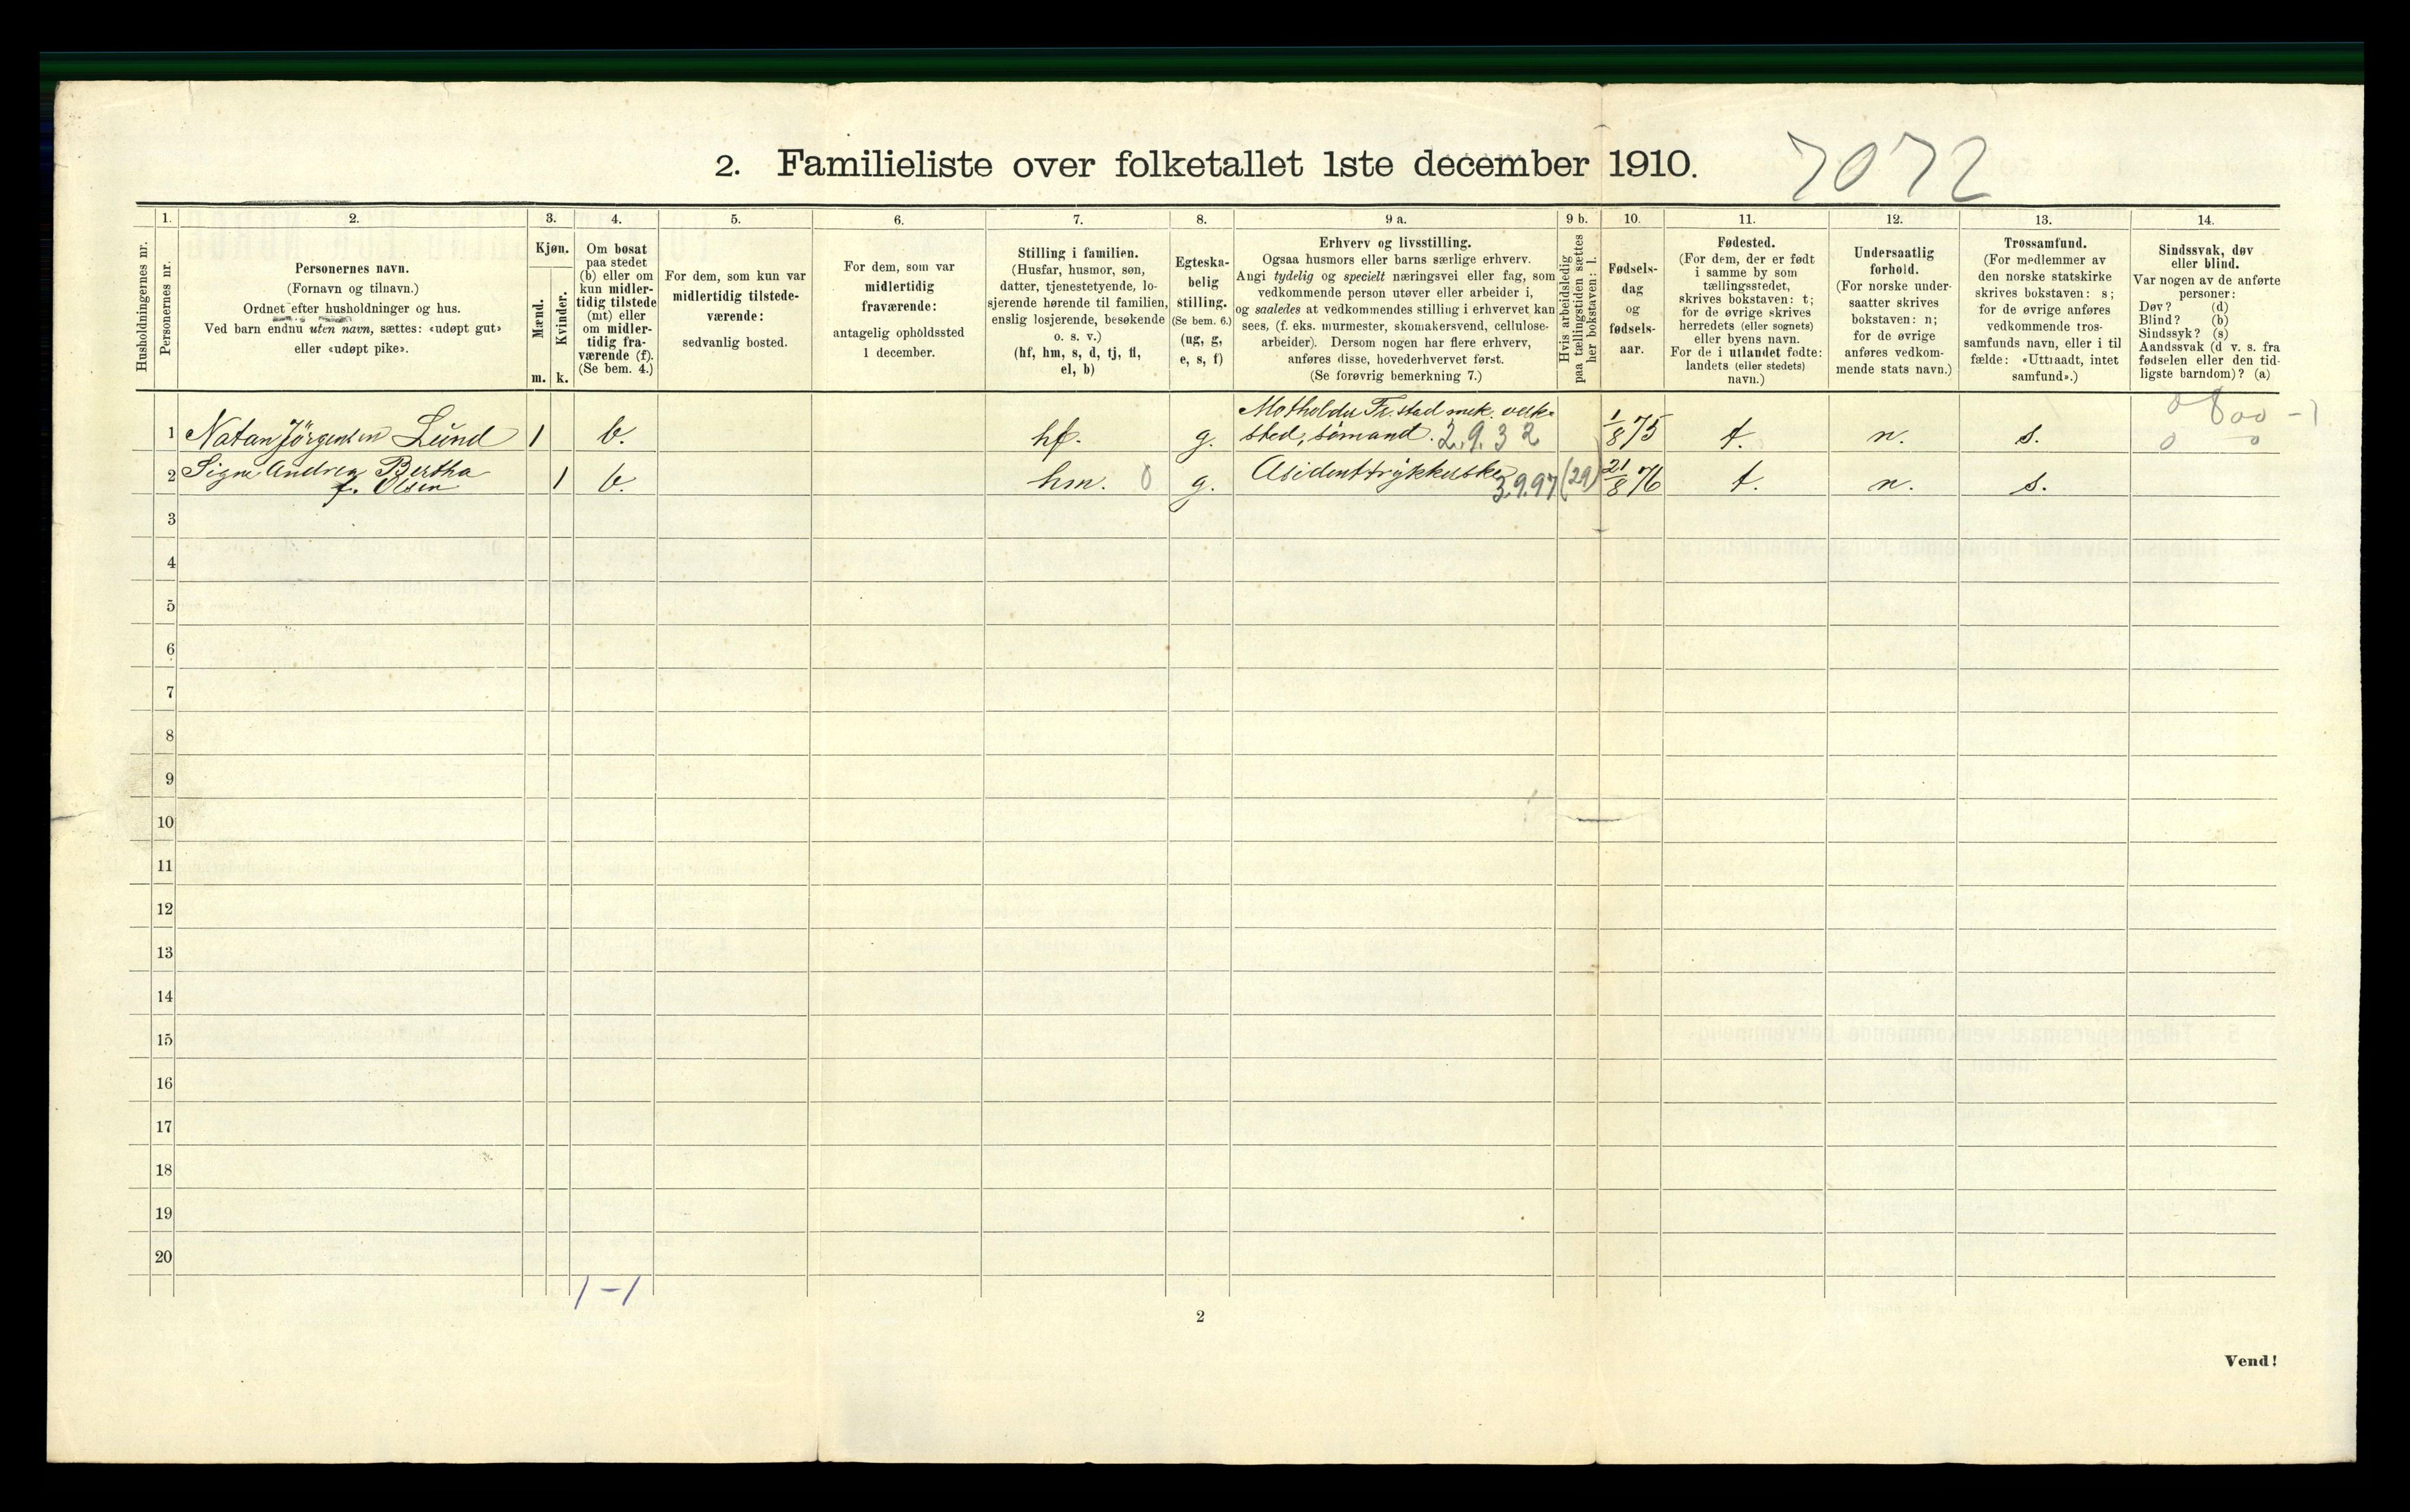 2. Familieliste over folketallet 1ste december 1910.
7072
Husholdningernes nr.
1.
Personernes nr.
2.
Personernes navn.
(Fornavn og tilnavn.)
Ordnet efter husholdninger og hus.
Ved barn endnu uten navn, sættes: «udøpt gut»
eller «udøpt pike».
3.
Kjøn.
Mænd.
Kvinder.
m. k.
4.
Om bosat
paa stedet
(b) eller om
kun midler-
tidig tilstede
(mt) eller
om midler-
tidig fra-
værende (f).
(Se bem. 4.)
5.
For dem, som kun var
midlertidig tilstede-
værende:
sedvanlig bosted.
6.
For dem, som var
midlertidig
fraværende:
antagelig opholdssted
1 december.
7.
Stilling i familien.
(Husfar, husmor, søn,
datter, tjenestetyende, lo-
sjerende hørende til familien,
enslig losjerende, besøkende
o. s. v.)
(hf, hm, s, d, tj, fl,
el, b)
8.
Egteska-
belig
stilling.
(Se bem. 6.)
(ug, g,
e, s, f)
9 a.
Erhverv og livsstilling.
Ogsaa husmors eller barns særlige erhverv.
Angi tydelig og specielt næringsvei eller fag, som
vedkommende person utøver eller arbeider i,
og saaledes at vedkommendes stilling i erhvervet kan
sees, (f. eks. murmester, skomakersvend, cellulose-
arbeider). Dersom nogen har flere erhverv,
anføres disse, hovederhvervet først.
(Se forøvrig bemerkning 7.)
9 b.
Hvis arbeidsledig
paa tællingstiden sættes
her bokstaven: l.
10.
Fødsels-
dag
og
fødsels-
aar.
11.
Fødested.
(For dem, der er født
i samme by som
tællingsstedet,
skrives bokstaven: t;
for de øvrige skrives
herredets (eller sognets)
eller byens navn.
For de i utlandet fødte:
landets (eller stedets)
navn.)
12.
Undersaatlig
forhold.
(For norske under-
saatter skrives
bokstaven: n;
for de øvrige
anføres vedkom-
mende stats navn.)
13.
Trossamfund.
(For medlemmer av
den norske statskirke
skrives bokstaven: s;
for de øvrige anføres
vedkommende tros-
samfunds navn, eller i til
fælde: «Uttraadt, intet
samfund».)
14.
Sindssvak, døv
eller blind.
Var nogen av de anførte
personer:
Døv? (d)
Blind? (b)
Sindssyk? (s)
Aandssvak (d v. s. fra
fødselen eller den tid-
ligste barndom)? (a)
1 Natan Jörgensen Lund 1 b. hf. g. Motholder Fr.stad mek. verk-
sted, sömand. 2.9.32 1/8 75 t. n. s.
0 0
2 Signe Andrea Bertha
f. Olsen 1 b. hm. 0 g. Asidenttrykkerske
3.9.97 (29) 21/8 76 t. n. s.
3
4
5
6
7
8
9
10
11
12
13
14
15
16
17
18
19
20
1-1
2
Vend!